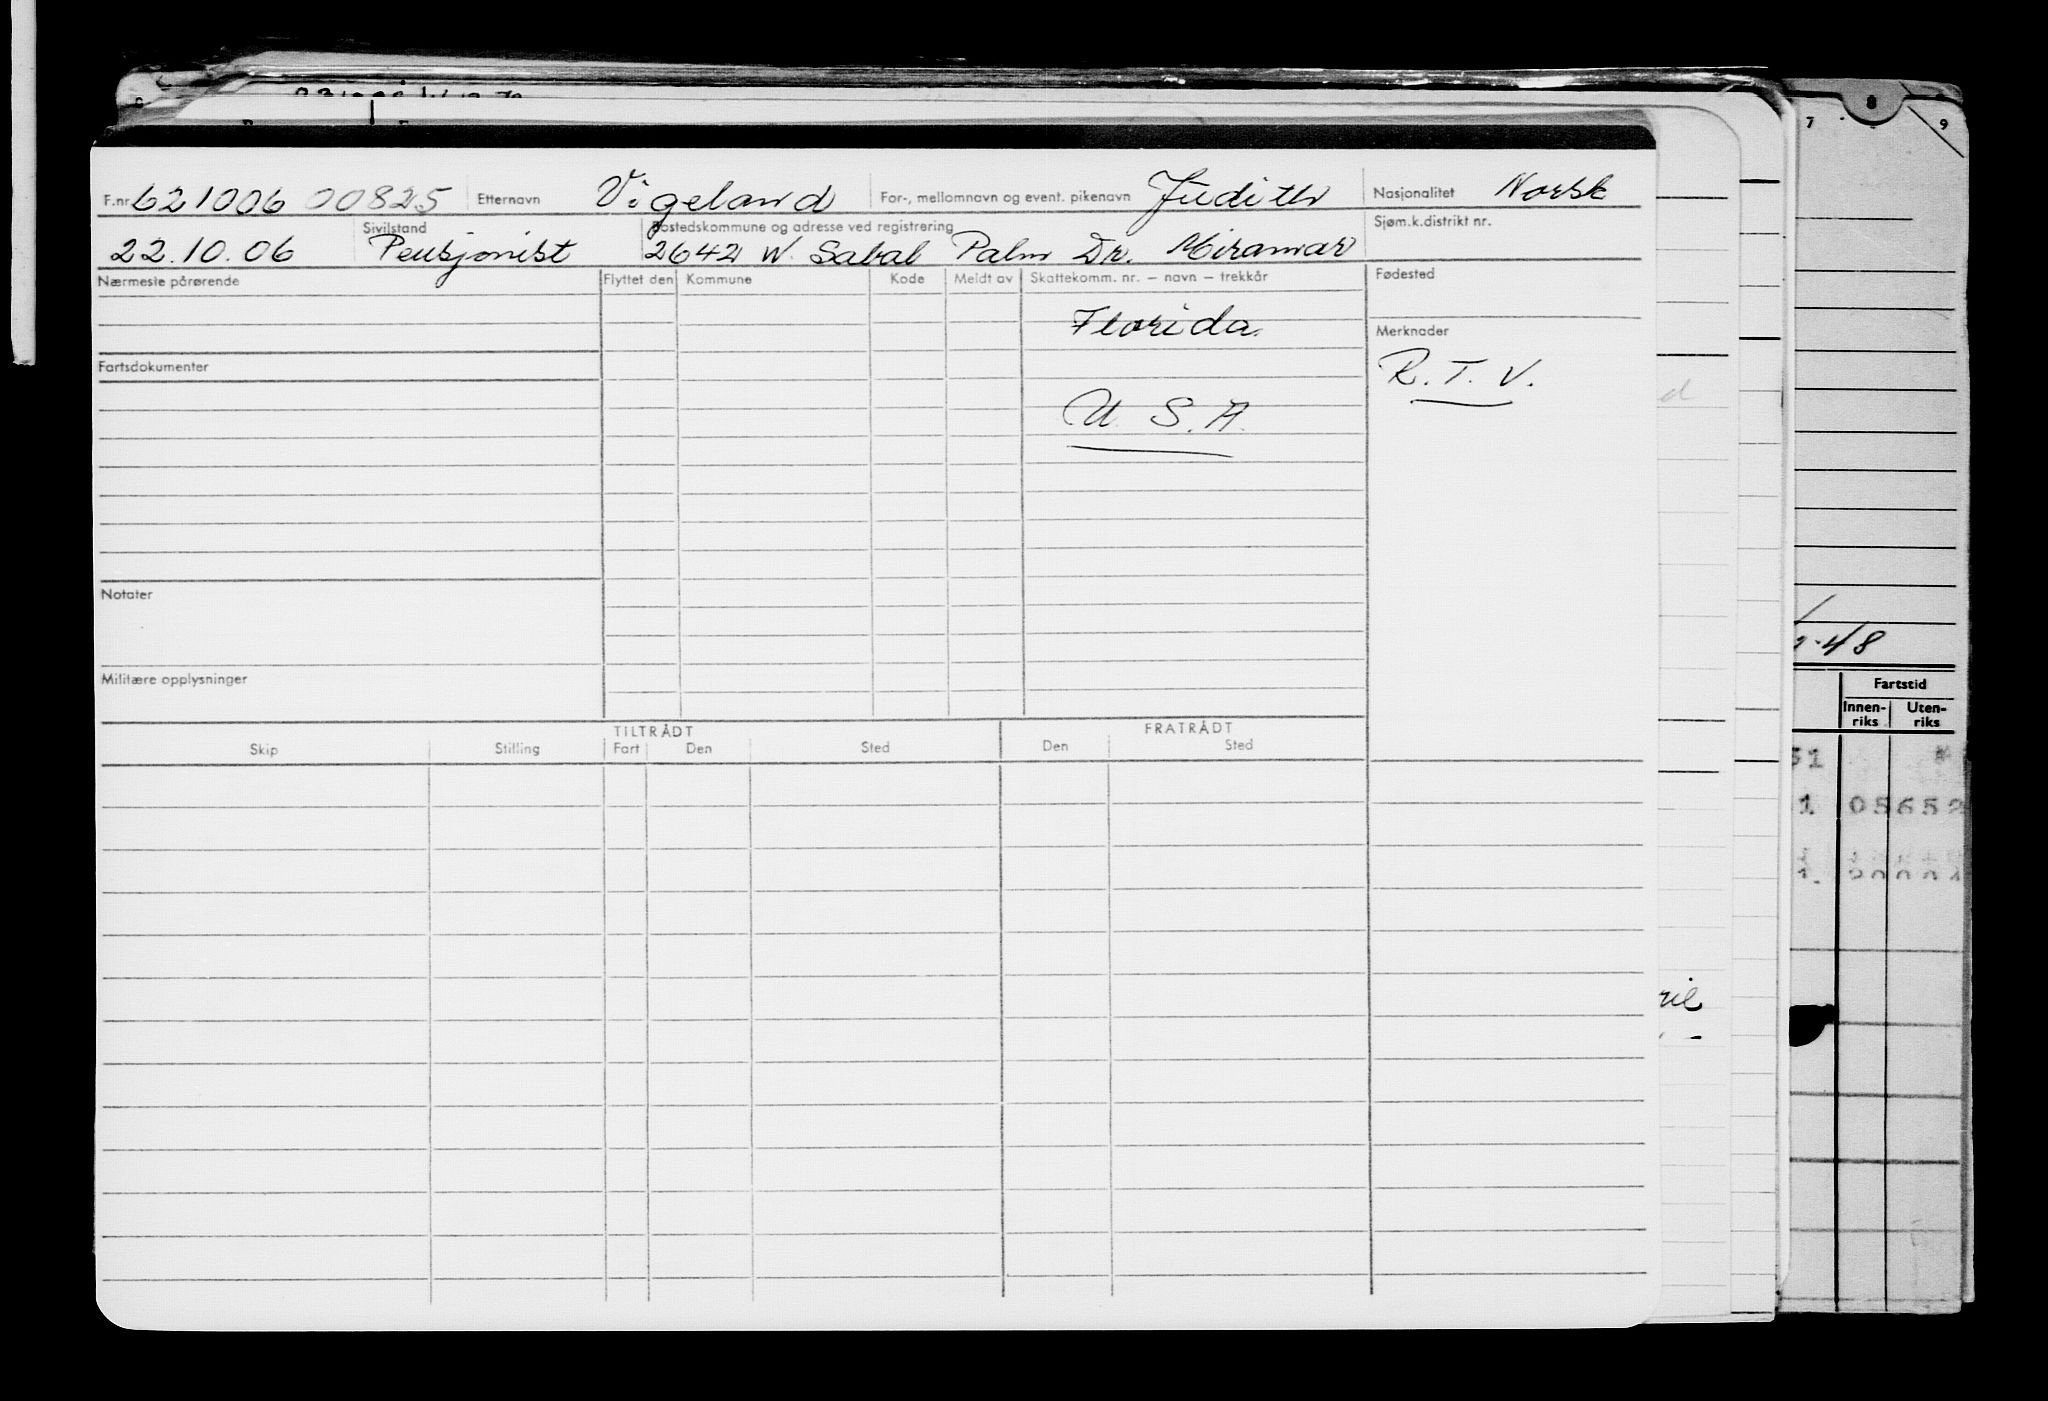 F.nr. 621006 00825 Etternavn Vigeland For-, mellomnavn og event. pikenavn Judith Nasjonalitet Norsk
22.10.06 Sivilstand Pensjonist Bostedskommune og adresse ved registrering 2642 W. Sabal Palm Dr. Miramar Sjøm.k.distrikt nr.
Nærmeste pårørende Flyttet den Kommune Kode Meldt av Skattekomm. nr. – navn – trekkår Fødested
Florida.
Merknader
Fartsdokumenter R.T.V.
U.S.A.
Notater
Militære opplysninger
TILTRÅDT FRATRÅDT
Skip Stilling Fart Den Sted Den Sted
7 8 9
48
Fartstid
Innen-riks Uten-riks
31
1 05652